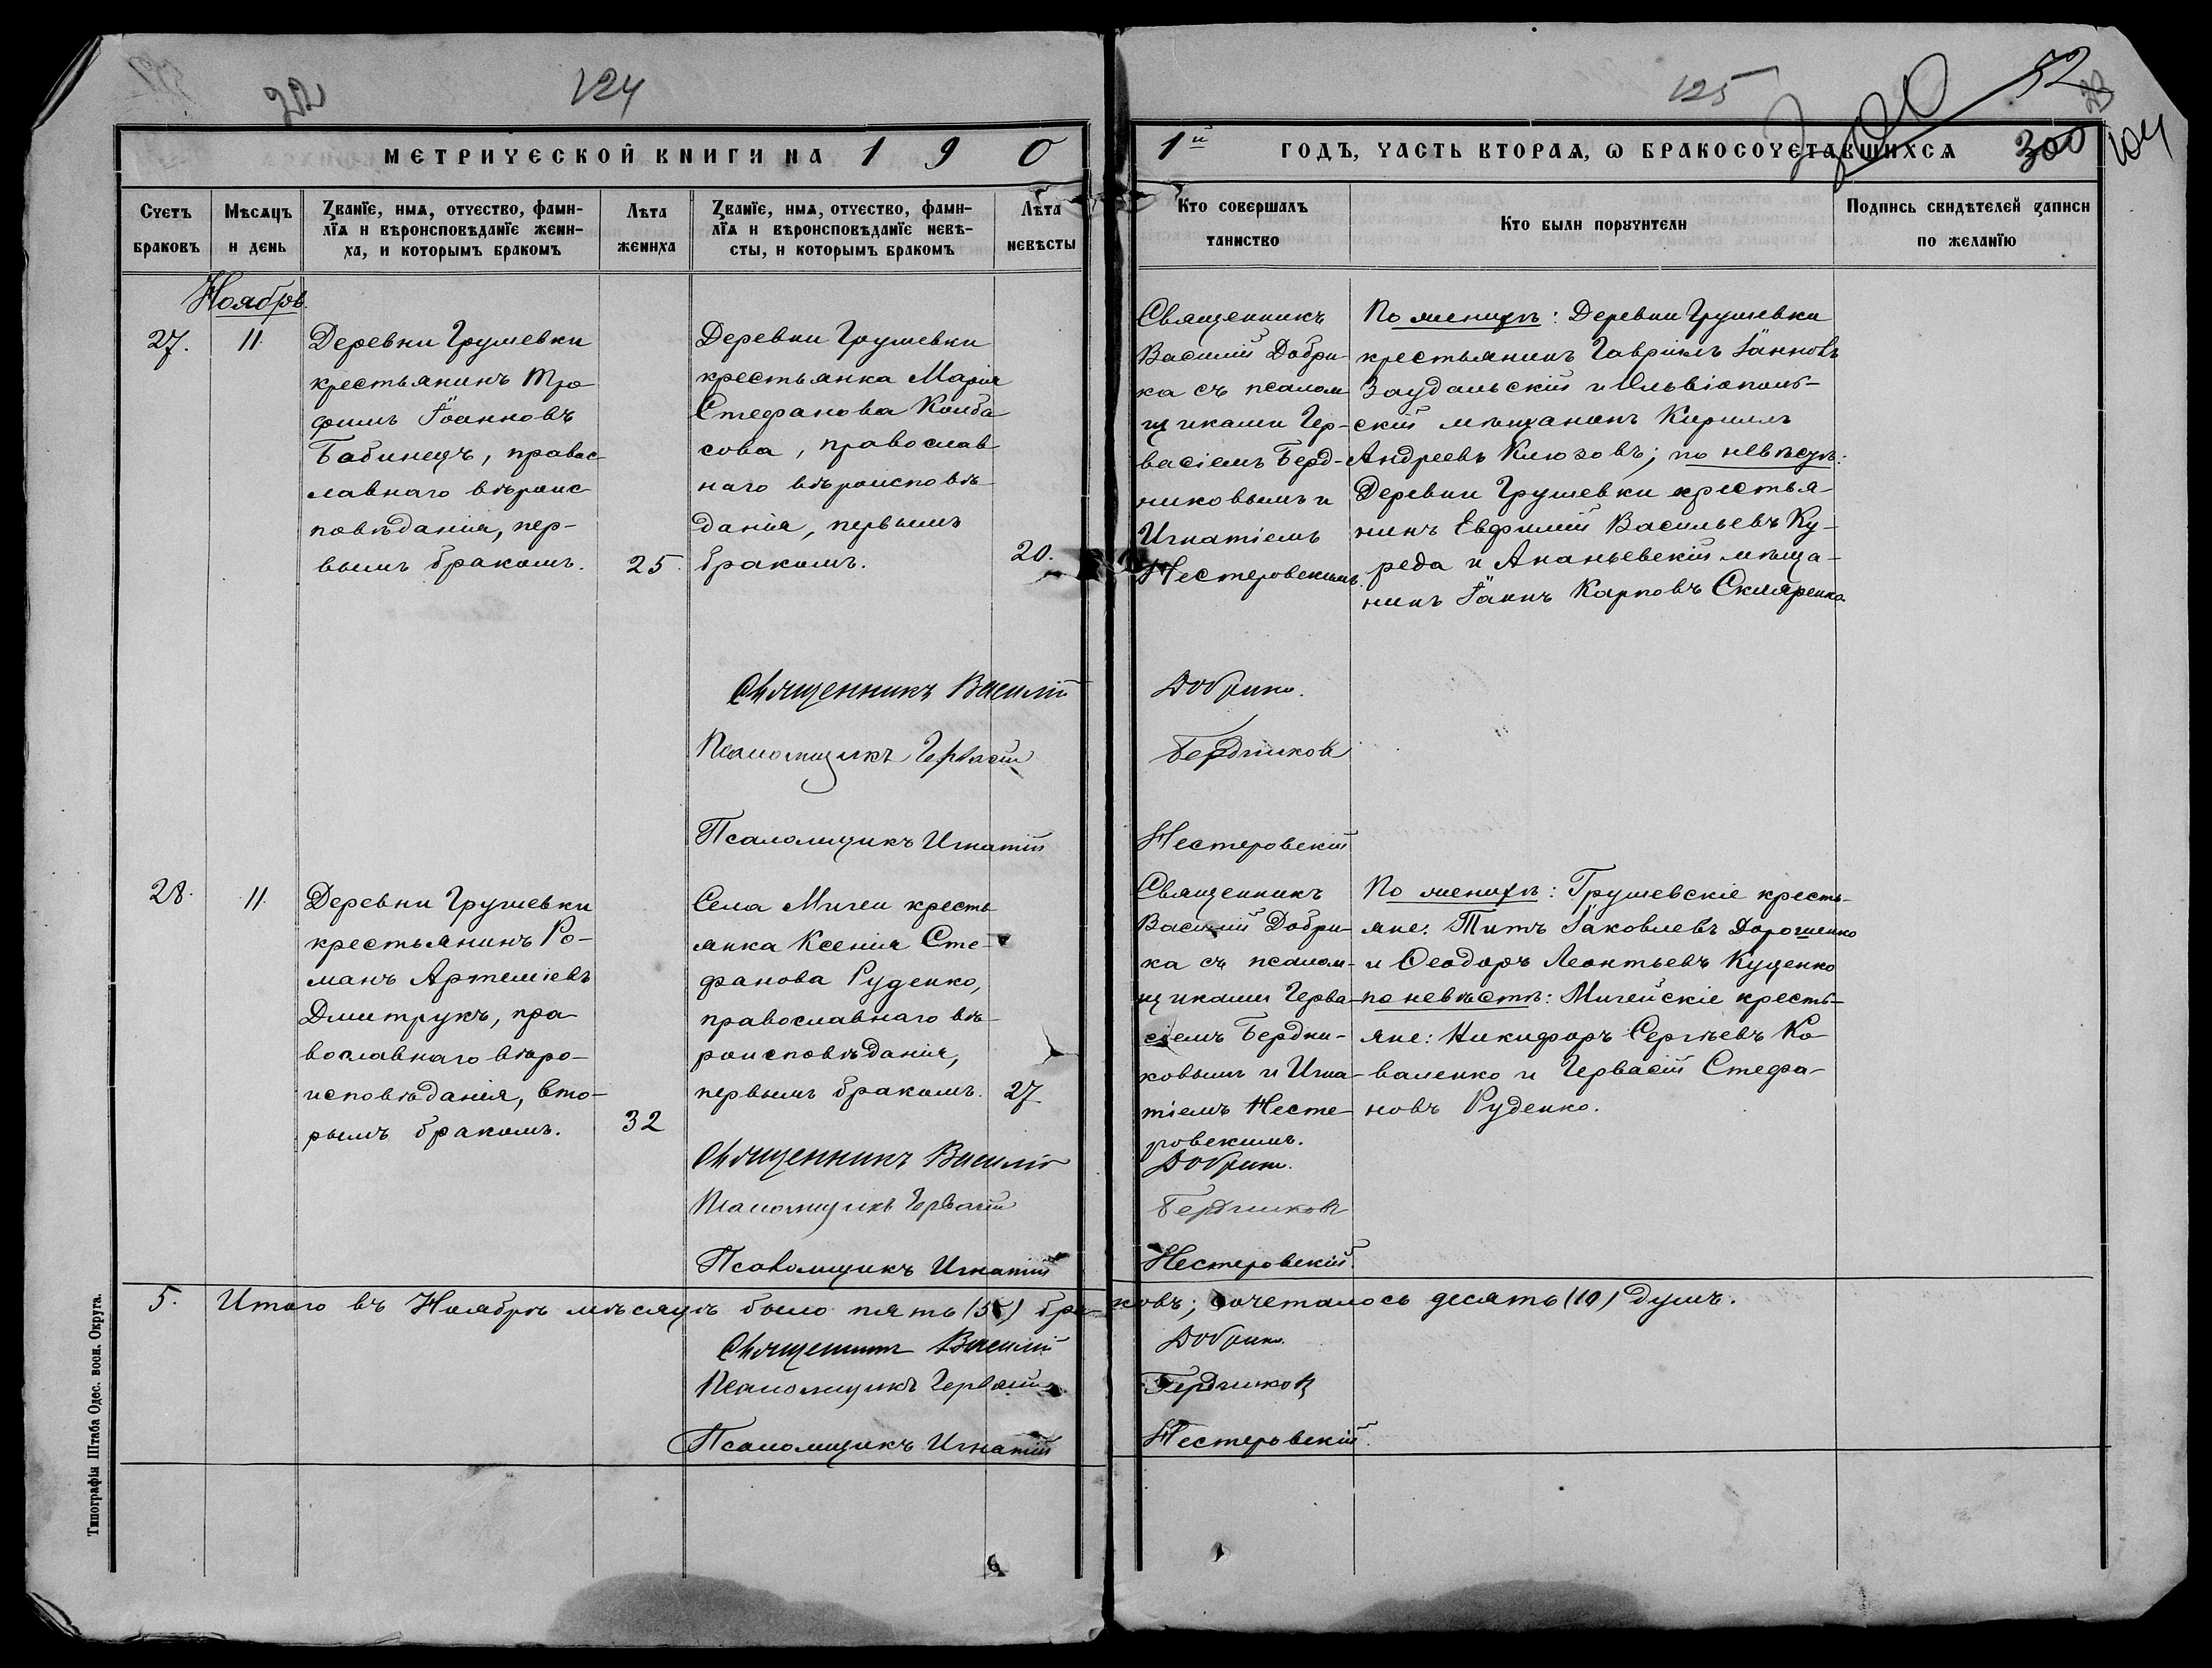 124
125
52
300
104
МЕТРИЧЕСКОЙ КНИГИ НА 1 9 0
1й ГОДЪ, ЧАСТЬ ВТОРАЯ, Ѡ БРАКОСОЧЕТАВШИХСЯ
Счетъ браковъ
Мѣсяцъ и день
Званїе, имя, отчество, фами-
лїя и вѣроисповѣданїе жени-
ха, и которымъ бракомъ
Лѣта жениха
Званїе, имя, отчество, фами-
лїя и вѣроисповѣданїе невѣ-
сты, и которымъ бракомъ
Лѣта невѣсты
Кто совершалъ таинство
Кто были поручители
Подпись свидѣтелей записи
по желанїю
Ноябрь
27.
11.
Деревни Грушевки
крестьянинъ Тро-
фимъ Іоанновъ
Бабинецъ, правос-
лавнаго вѣроис-
повѣданія, пер-
вымъ бракомъ.
25.
Деревни Грушевки
крестьянка Марія
Стефанова Колба
сова, православ
наго вѣроисповѣ-
данія, первымъ
бракомъ.
20.
Священникъ
Василій Добри-
ка съ псалом
щиками Гер-
васіемъ Берд-
никовымъ и
Игнатіемъ
Нестеровскимъ.
По женихѣ: Деревни Грушевки
крестьянинъ Гавріилъ Іанновъ
Заудальскій и Ольвіополь-
скій мѣщанинъ Кириллъ
Андреевъ Клюзовъ; по невѣстѣ:
Деревни Грушевки крестья-
нинъ Евфимій Васильевъ Ку-
реда и Ананьевскій мѣща-
нинъ Іаннъ Карповъ Скляренко
Священникъ Василій Добрика.
Псаломщикъ Гервасій Бердниковъ
Псаломщикъ Игнатій Нестеровскій
28.
11.
Деревни Грушевки
крестьянинъ Ро-
манъ Артеміевъ
Дмитрукъ, пра-
вославнаго вѣро-
исповѣданія, вто-
рымъ бракомъ.
32
Села Мигеи кресть
янка Ксенія Сте-
фанова Руденко,
православнаго вѣ-
роисповѣданія,
первымъ бракомъ.
27
Священникъ
Василій Добри-
ка съ псалом-
щиками Герва-
сіемъ Бердни-
ковымъ и Игна-
тіемъ Несте-
ровскимъ.
По женихѣ: Грушевскіе кресть-
яне: Титъ Іаковлевъ Дорошенко
и Ѳеодоръ Леонтьевъ Куценко
по невѣстѣ: Мигейскіе кресть-
яне: Никифоръ Сергѣевъ Ко-
валенко и Гервасій Стефа-
новъ Руденко.
Священникъ Василій Добрика.
Псаломщикъ Гервасій Бердниковъ
Псаломщикъ Игнатій Нестеровскій.
5. Итого въ Ноябрѣ мѣсяцѣ было пять (5) браковъ; сочеталось десять (10) душъ.
Священникъ Василій Добрика.
Псаломщикъ Гервасій Бердниковъ
Псаломщикъ Игнатій Нестеровскій.
Типографія Штаба Одес. воен. Округа.